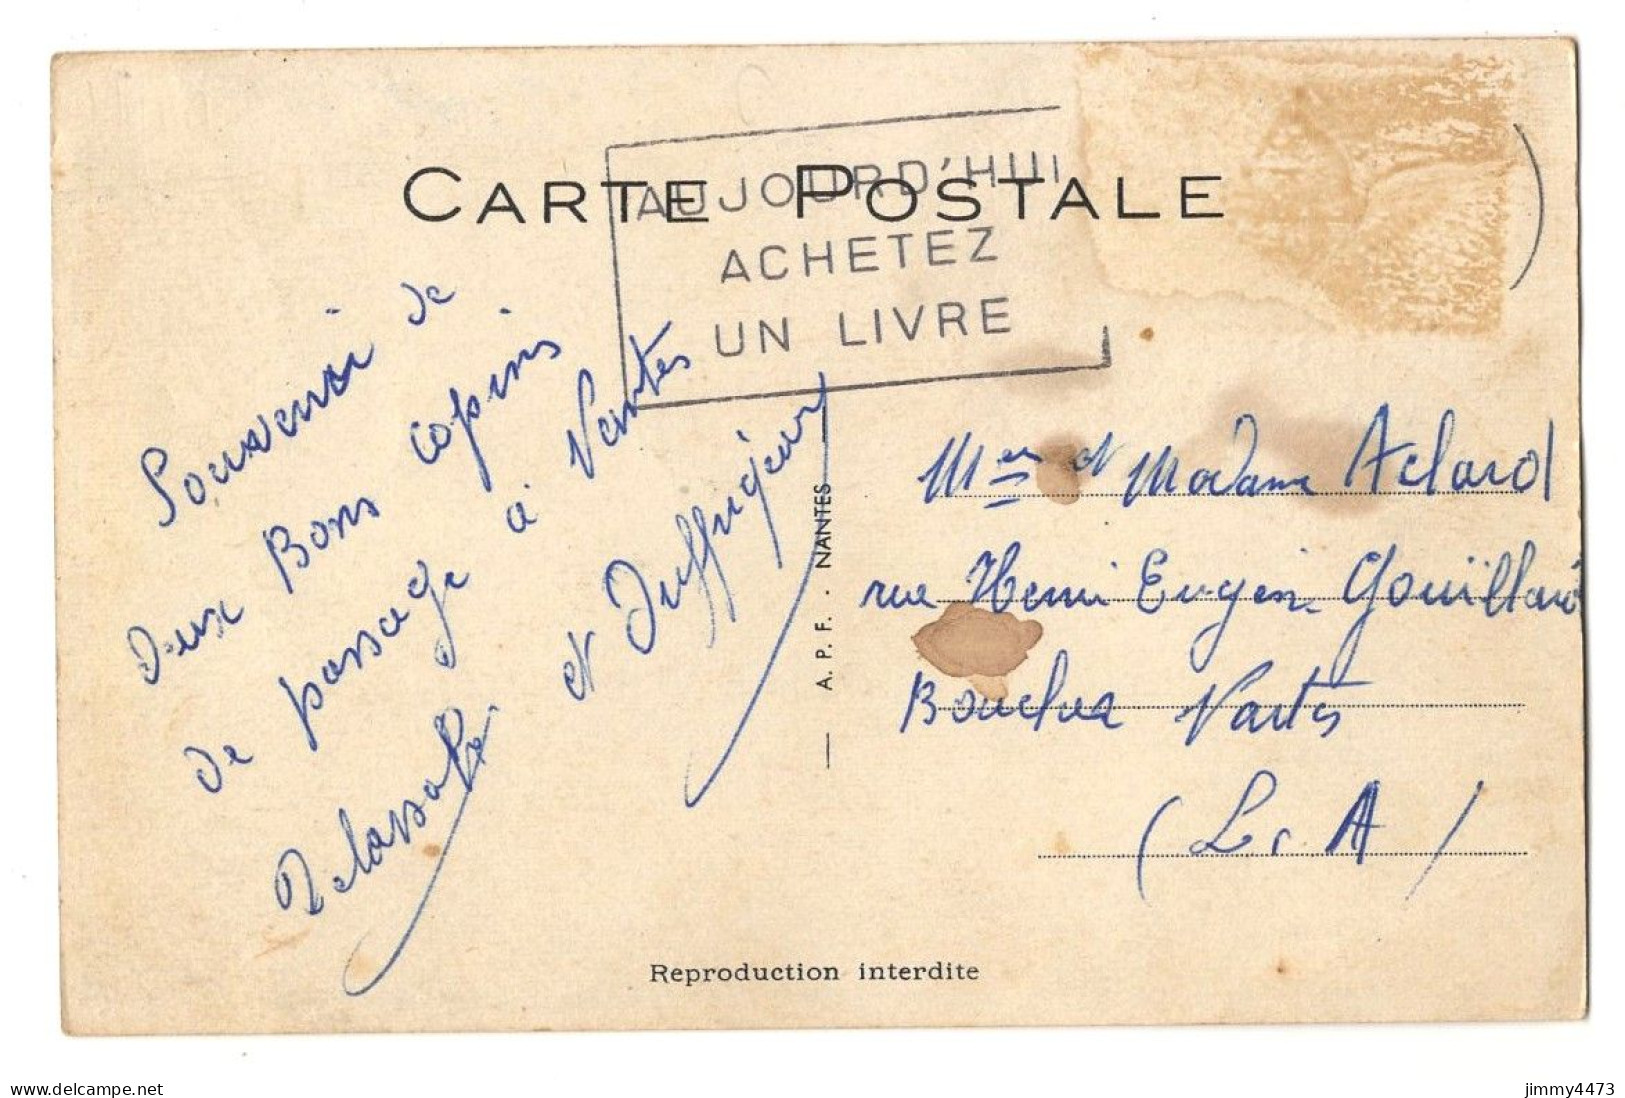 CARTE POSTALE
AUJOURD'HUI
ACHETEZ
UN LIVRE
Souvenir de
deux Bons copins
de passage à Nantes
et
A. P. F. . NANTES
et Madame Aclard
rue Henri Eugen
Nantes
(L. A)
Reproduction interdite
www.delcampe.net
jimmy4473